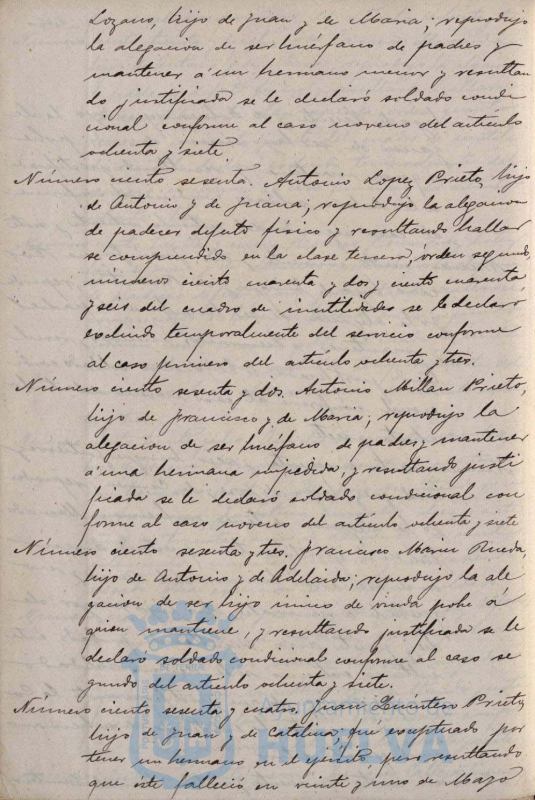 Lozano, hijo de Juan y de Maria; reprodujo
la alegacion de ser huérfano de padres y
mantener á un hermano menor y resultan
do justificada se le declaró soldado condi
cional conforme al caso noveno del artículo
ochenta y siete.
Número ciento sesenta. Antonio Lopez Prieto, hijo
de Antonio y de Juana; reprodujo la alegacion
de padecer defecto físico y resultando hallar
se comprendido en la clase tercera, órden segundo,
números ciento cuarenta y dos y ciento cuarenta
y seis del cuadro de inutilidades se le declaró
excluido temporalmente del servicio conforme
al caso primero del artículo ochenta y tres.
Número ciento sesenta y dos. Antonio Millan Prieto,
hijo de Francisco y de Maria; reprodujo la
alegacion de ser huérfano de padres y mantener
á una hermana impedida, y resultando justi
ficada se le declaró soldado condicional con
forme al caso noveno del artículo ochenta y siete
Número ciento sesenta y tres. Francisco Marin Rueda,
hijo de Antonio y de Adelaida, reprodujo la ale
gacion de ser hijo único de viuda pobre á
quien mantiene, y resultando justificada se le
declaró soldado condicional conforme al caso se
gundo del artículo ochenta y siete.
Número ciento sesenta y cuatro. Juan Quintero Prieto,
hijo de Juan y de Catalina, fué exceptuado por
tener un hermano en el ejército, pero resultando
que éste falleció en veinte y uno de Mayo
HUELVA